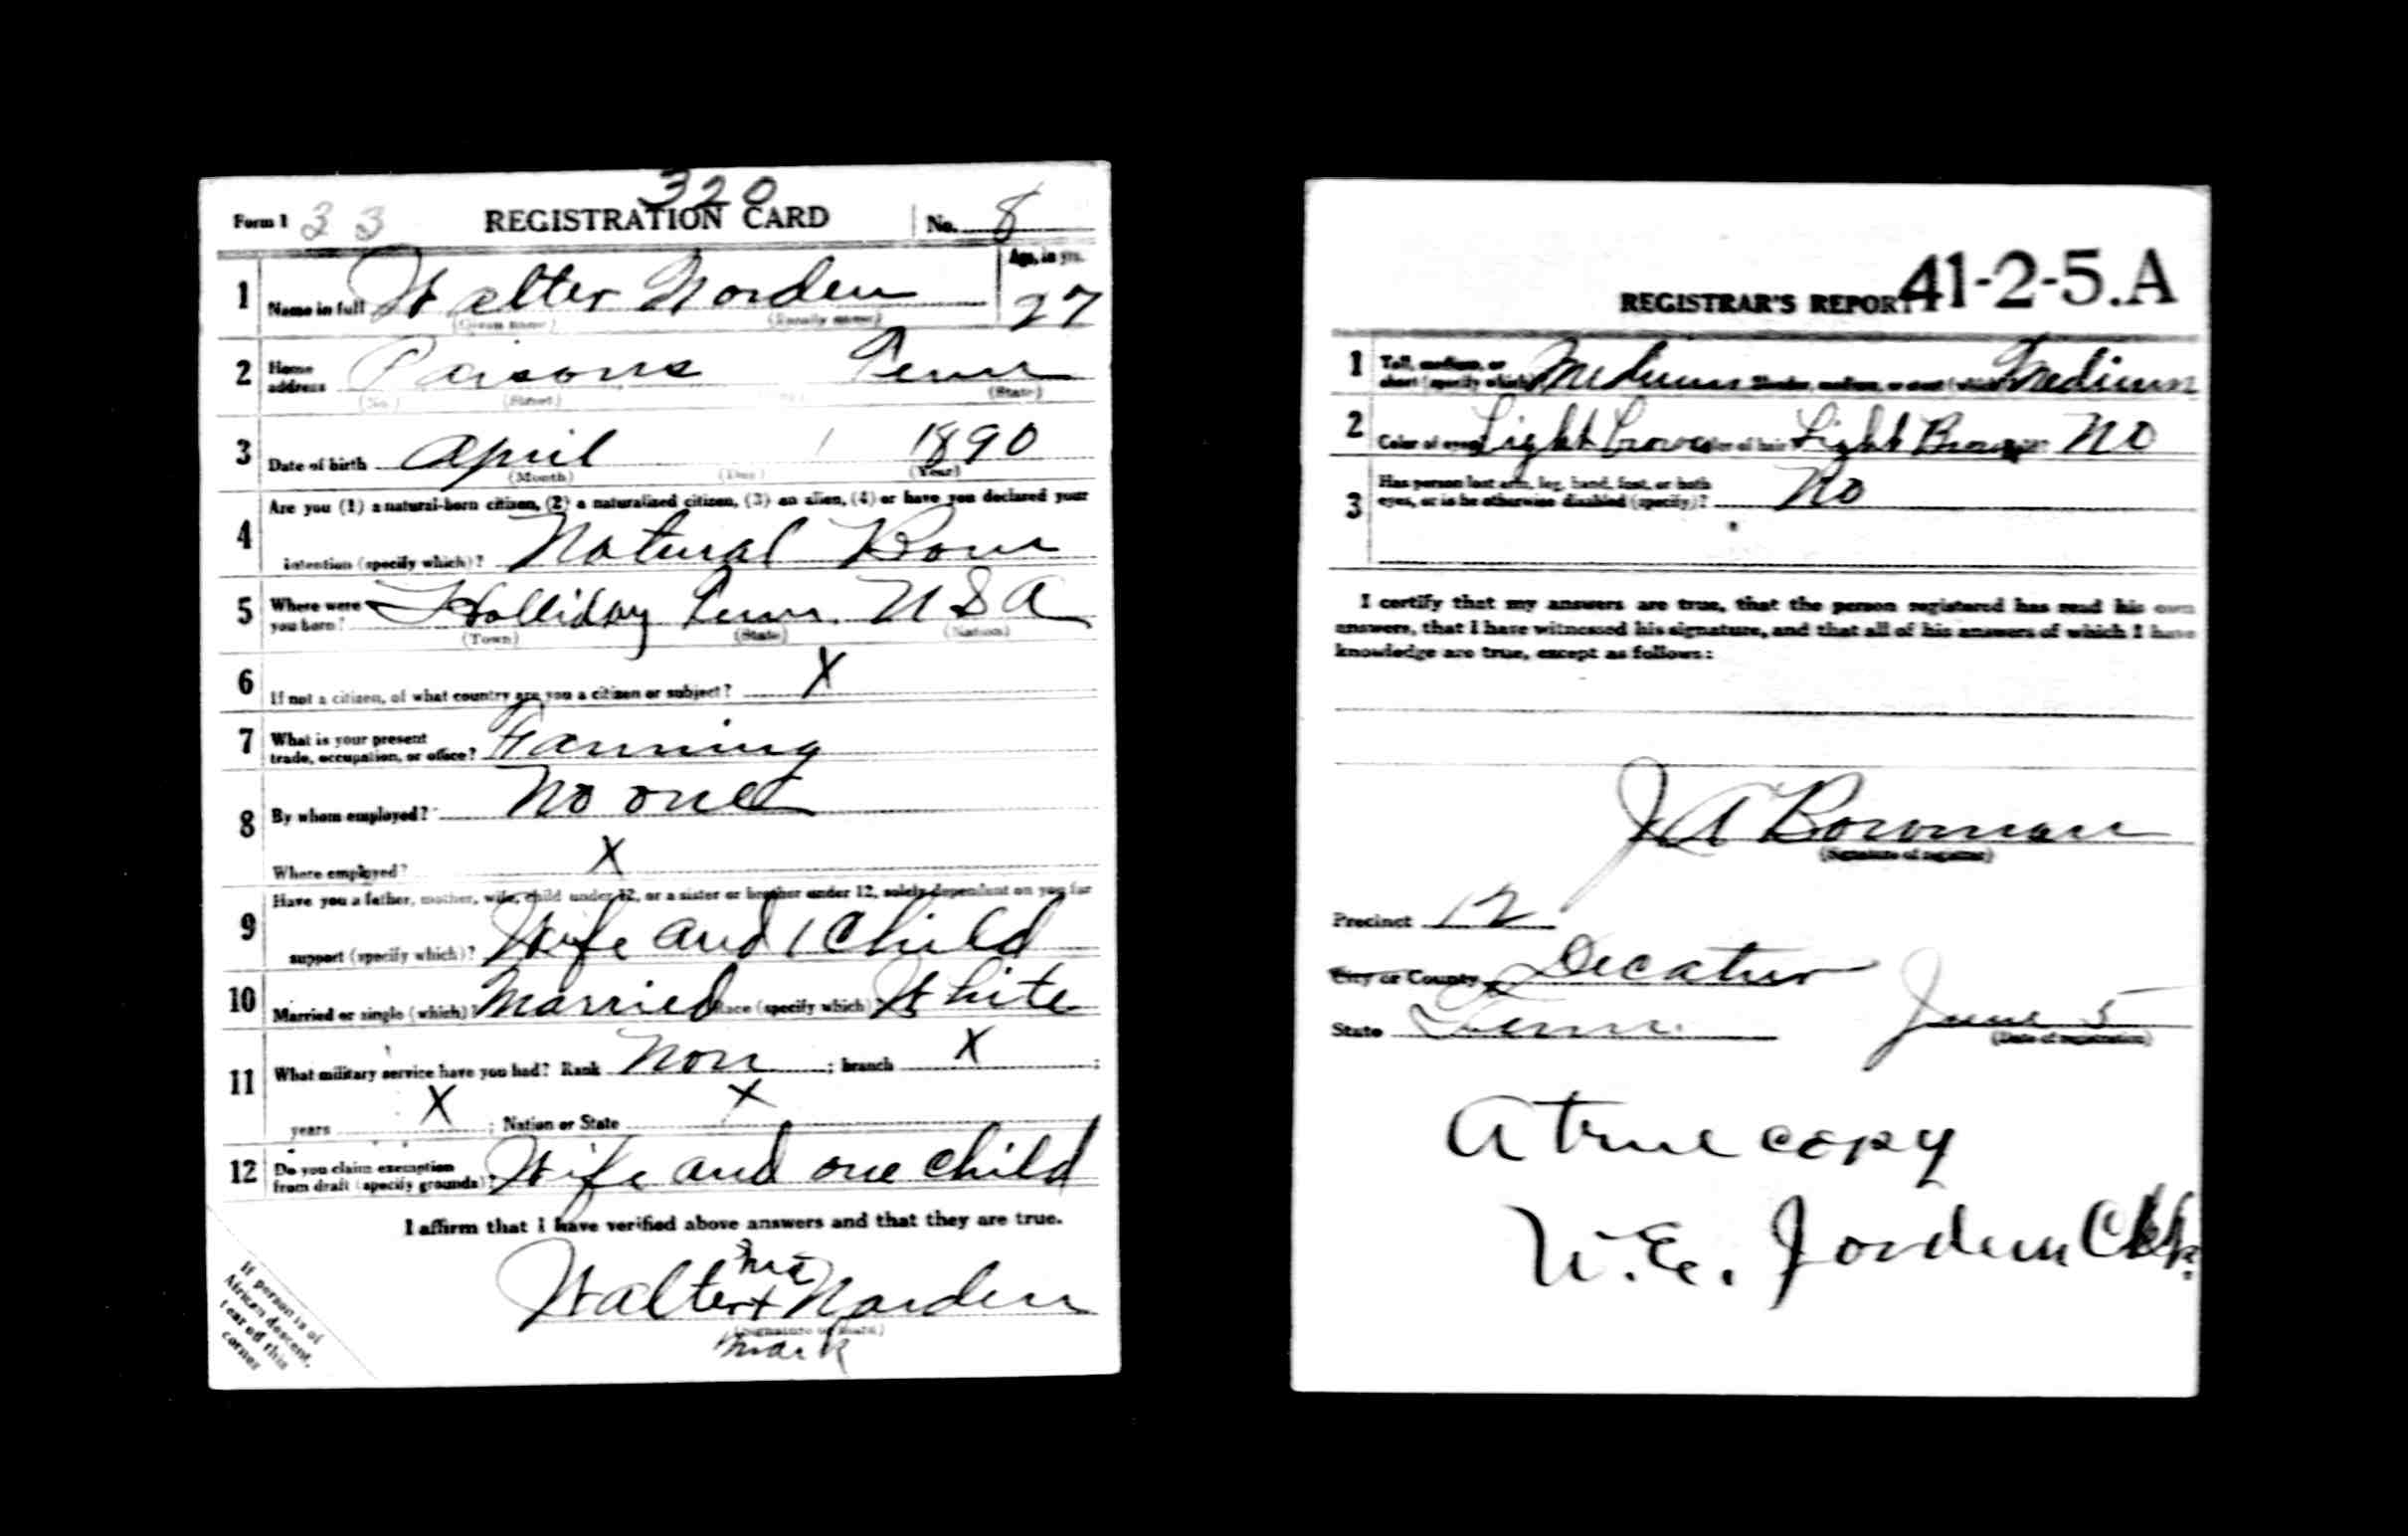 320
Form 1 33 REGISTRATION CARD No. 8
1 Name in full Walter Norden Age, in yrs. 27
(Given name) (Family name)
2 Home address Parsons Tenn
(No.) (Street) (State)
3 Date of birth April 1 1890
(Month) (Day) (Year)
4 Are you (1) a natural-born citizen, (2) a naturalized citizen, (3) an alien, (4) or have you declared your
intention (specify which)? Natural Born
5 Where were you born? Holliday Tenn. U S A
(Town) (State) (Nation)
6 If not a citizen, of what country are you a citizen or subject? X
7 What is your present
trade, occupation, or office? Farming
8 By whom employed? No one
Where employed? X
9 Have you a father, mother, wife, child under 12, or a sister or brother under 12, solely dependent on you for
support (specify which)? Wife and 1 Child
10 Married or single (which)? Married Race (specify which)? White
11 What military service have you had? Rank Non ; branch X ;
years X ; Nation or State X
12 Do you claim exemption
from draft (specify grounds)? Wife and one child
I affirm that I have verified above answers and that they are true.
his
Walter x Norden
(Signature or mark)
mark
If person is of
African descent,
tear off this
corner
41-2-5.A
REGISTRAR'S REPORT
1 Tall, medium, or
short (specify which)? Medium Slender, medium, or stout (which)? Medium
2 Color of eyes Light Brown Color of hair Light Brown No
3 Has person lost arm, leg, hand, foot, or both
eyes, or is he otherwise disabled (specify)? No
I certify that my answers are true, that the person registered has read his own
answers, that I have witnessed his signature, and that all of his answers of which I have
knowledge are true, except as follows:
J A Bowman
(Signature of registrar)
Precinct 12
City or County Decatur
State Tenn. June 5
(Date of registration)
A true copy
W. E. Jordan Clk.